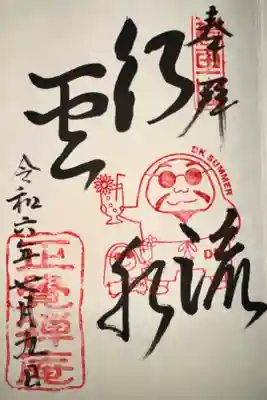 奉拝
行雲
流水
DK SUMMER
令和六年七月九日
禅庵